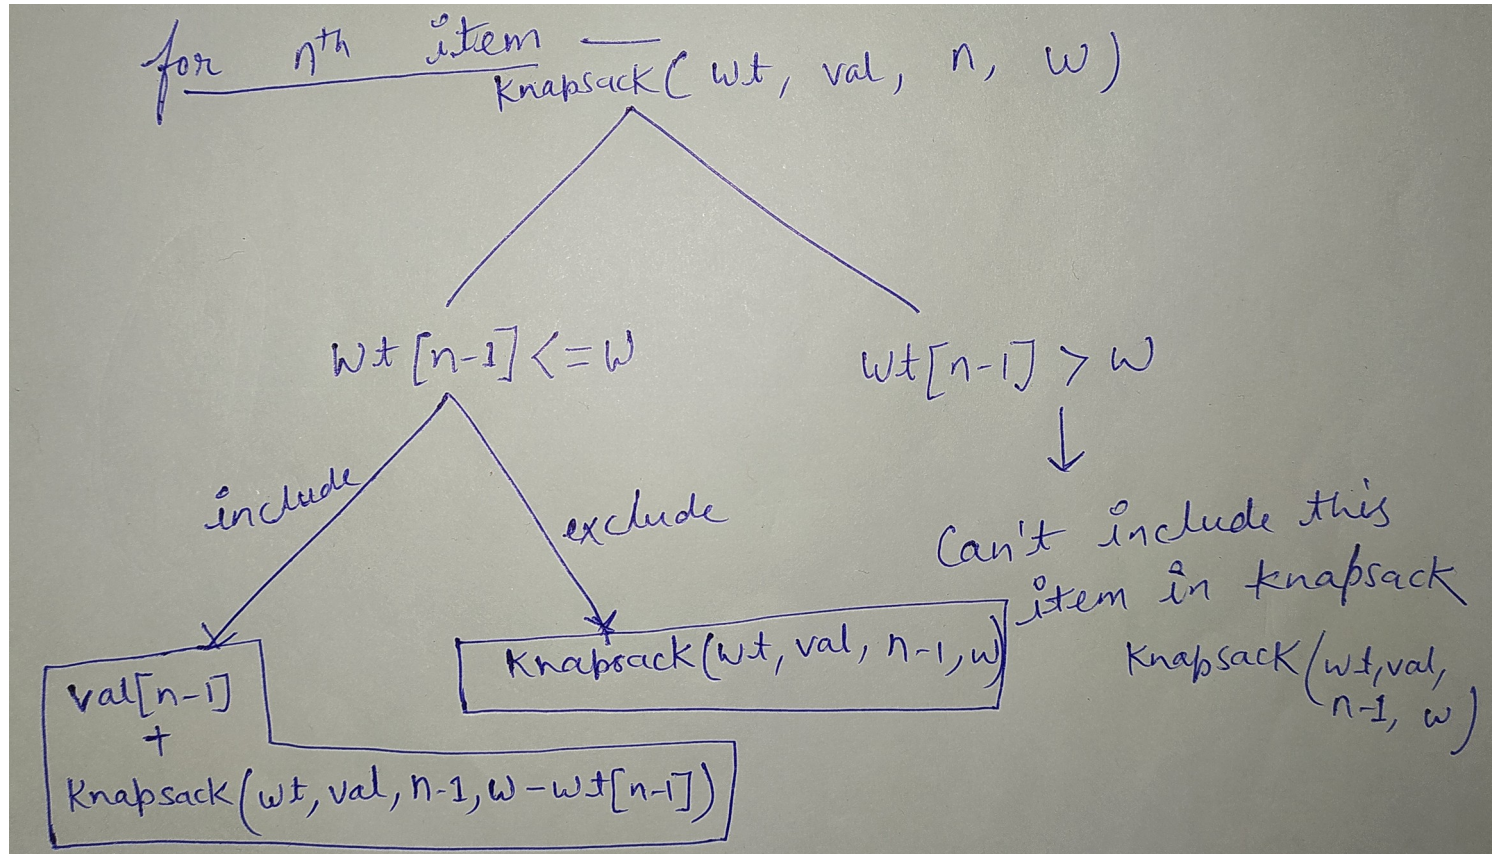 for nth item —
Knapsack( wt, val, n, W)
wt[n-1]<=W
wt[n-1] > W
include
exclude
Can't include this
item in knapsack
Knapsack(wt,val,
n-1, w)
Knapsack(wt, val, n-1, w)
val[n-1]
+
Knapsack(wt, val, n-1, w-wt[n-1])